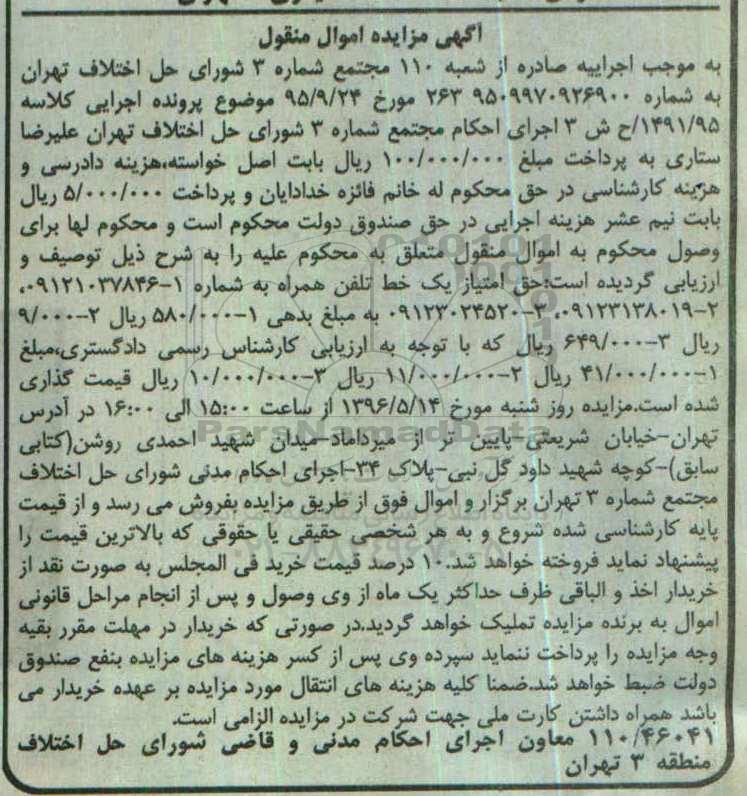 آگهی مزایده اموال منقول
به موجب اجراییه صادره از شعبه ۱۱۰ مجتمع شماره ۳ شورای حل اختلاف تهران
به شماره ۹۵۰۹۹۷۰۹۲۶۹۰۰ ۲۶۳ مورخ ۹۵/۹/۲۴ موضوع پرونده اجرایی کلاسه
۱۴۹۱/۹۵/ح ش ۳ اجرای احکام مجتمع شماره ۳ شورای حل اختلاف تهران علیرضا
ستاری به پرداخت مبلغ ۱۰۰/۰۰۰/۰۰۰ ریال بابت اصل خواسته،هزینه دادرسی و
هزینه کارشناسی در حق محکوم له خانم فائزه خدادایان و پرداخت ۵/۰۰۰/۰۰۰ ریال
بابت نیم عشر هزینه اجرایی در حق صندوق دولت محکوم است و محکوم لها برای
وصول محکوم به اموال منقول متعلق به محکوم علیه را به شرح ذیل توصیف و
ارزیابی گردیده است:حق امتیاز یک خط تلفن همراه به شماره ۱-۰۹۱۲۱۰۳۷۸۴۶،
۲-۰۹۱۲۳۱۳۸۰۱۹، ۳-۰۹۱۲۳۰۲۴۵۲۰ به مبلغ بدهی ۱-۵۸۰/۰۰۰ ریال ۲-۹/۰۰۰
ریال ۳-۶۴۹/۰۰۰ ریال که با توجه به ارزیابی کارشناس رسمی دادگستری،مبلغ
۱-۴۱/۰۰۰/۰۰۰ ریال ۲-۱۱/۰۰۰/۰۰۰ ریال ۳-۱۰/۰۰۰/۰۰۰ ریال قیمت گذاری
شده است.مزایده روز شنبه مورخ ۱۳۹۶/۵/۱۴ از ساعت ۱۵:۰۰ الی ۱۶:۰۰ در آدرس
تهران-خیابان شریعتی-پایین تر از میرداماد-میدان شهید احمدی روشن(کتابی
سابق)-کوچه شهید داود گل نبی-پلاک ۳۴-اجرای احکام مدنی شورای حل اختلاف
مجتمع شماره ۳ تهران برگزار و اموال فوق از طریق مزایده بفروش می رسد و از قیمت
پایه کارشناسی شده شروع و به هر شخصی حقیقی یا حقوقی که بالاترین قیمت را
پیشنهاد نماید فروخته خواهد شد.۱۰ درصد قیمت خرید فی المجلس به صورت نقد از
خریدار اخذ و الباقی ظرف حداکثر یک ماه از وی وصول و پس از انجام مراحل قانونی
اموال به برنده مزایده تملیک خواهد گردید.در صورتی که خریدار در مهلت مقرر بقیه
وجه مزایده را پرداخت ننماید سپرده وی پس از کسر هزینه های مزایده بنفع صندوق
دولت ضبط خواهد شد.ضمنا کلیه هزینه های انتقال مورد مزایده بر عهده خریدار می
باشد همراه داشتن کارت ملی جهت شرکت در مزایده الزامی است.
۱۱۰/۴۶۰۴۱ معاون اجرای احکام مدنی و قاضی شورای حل اختلاف
منطقه ۳ تهران
ParsNamadData